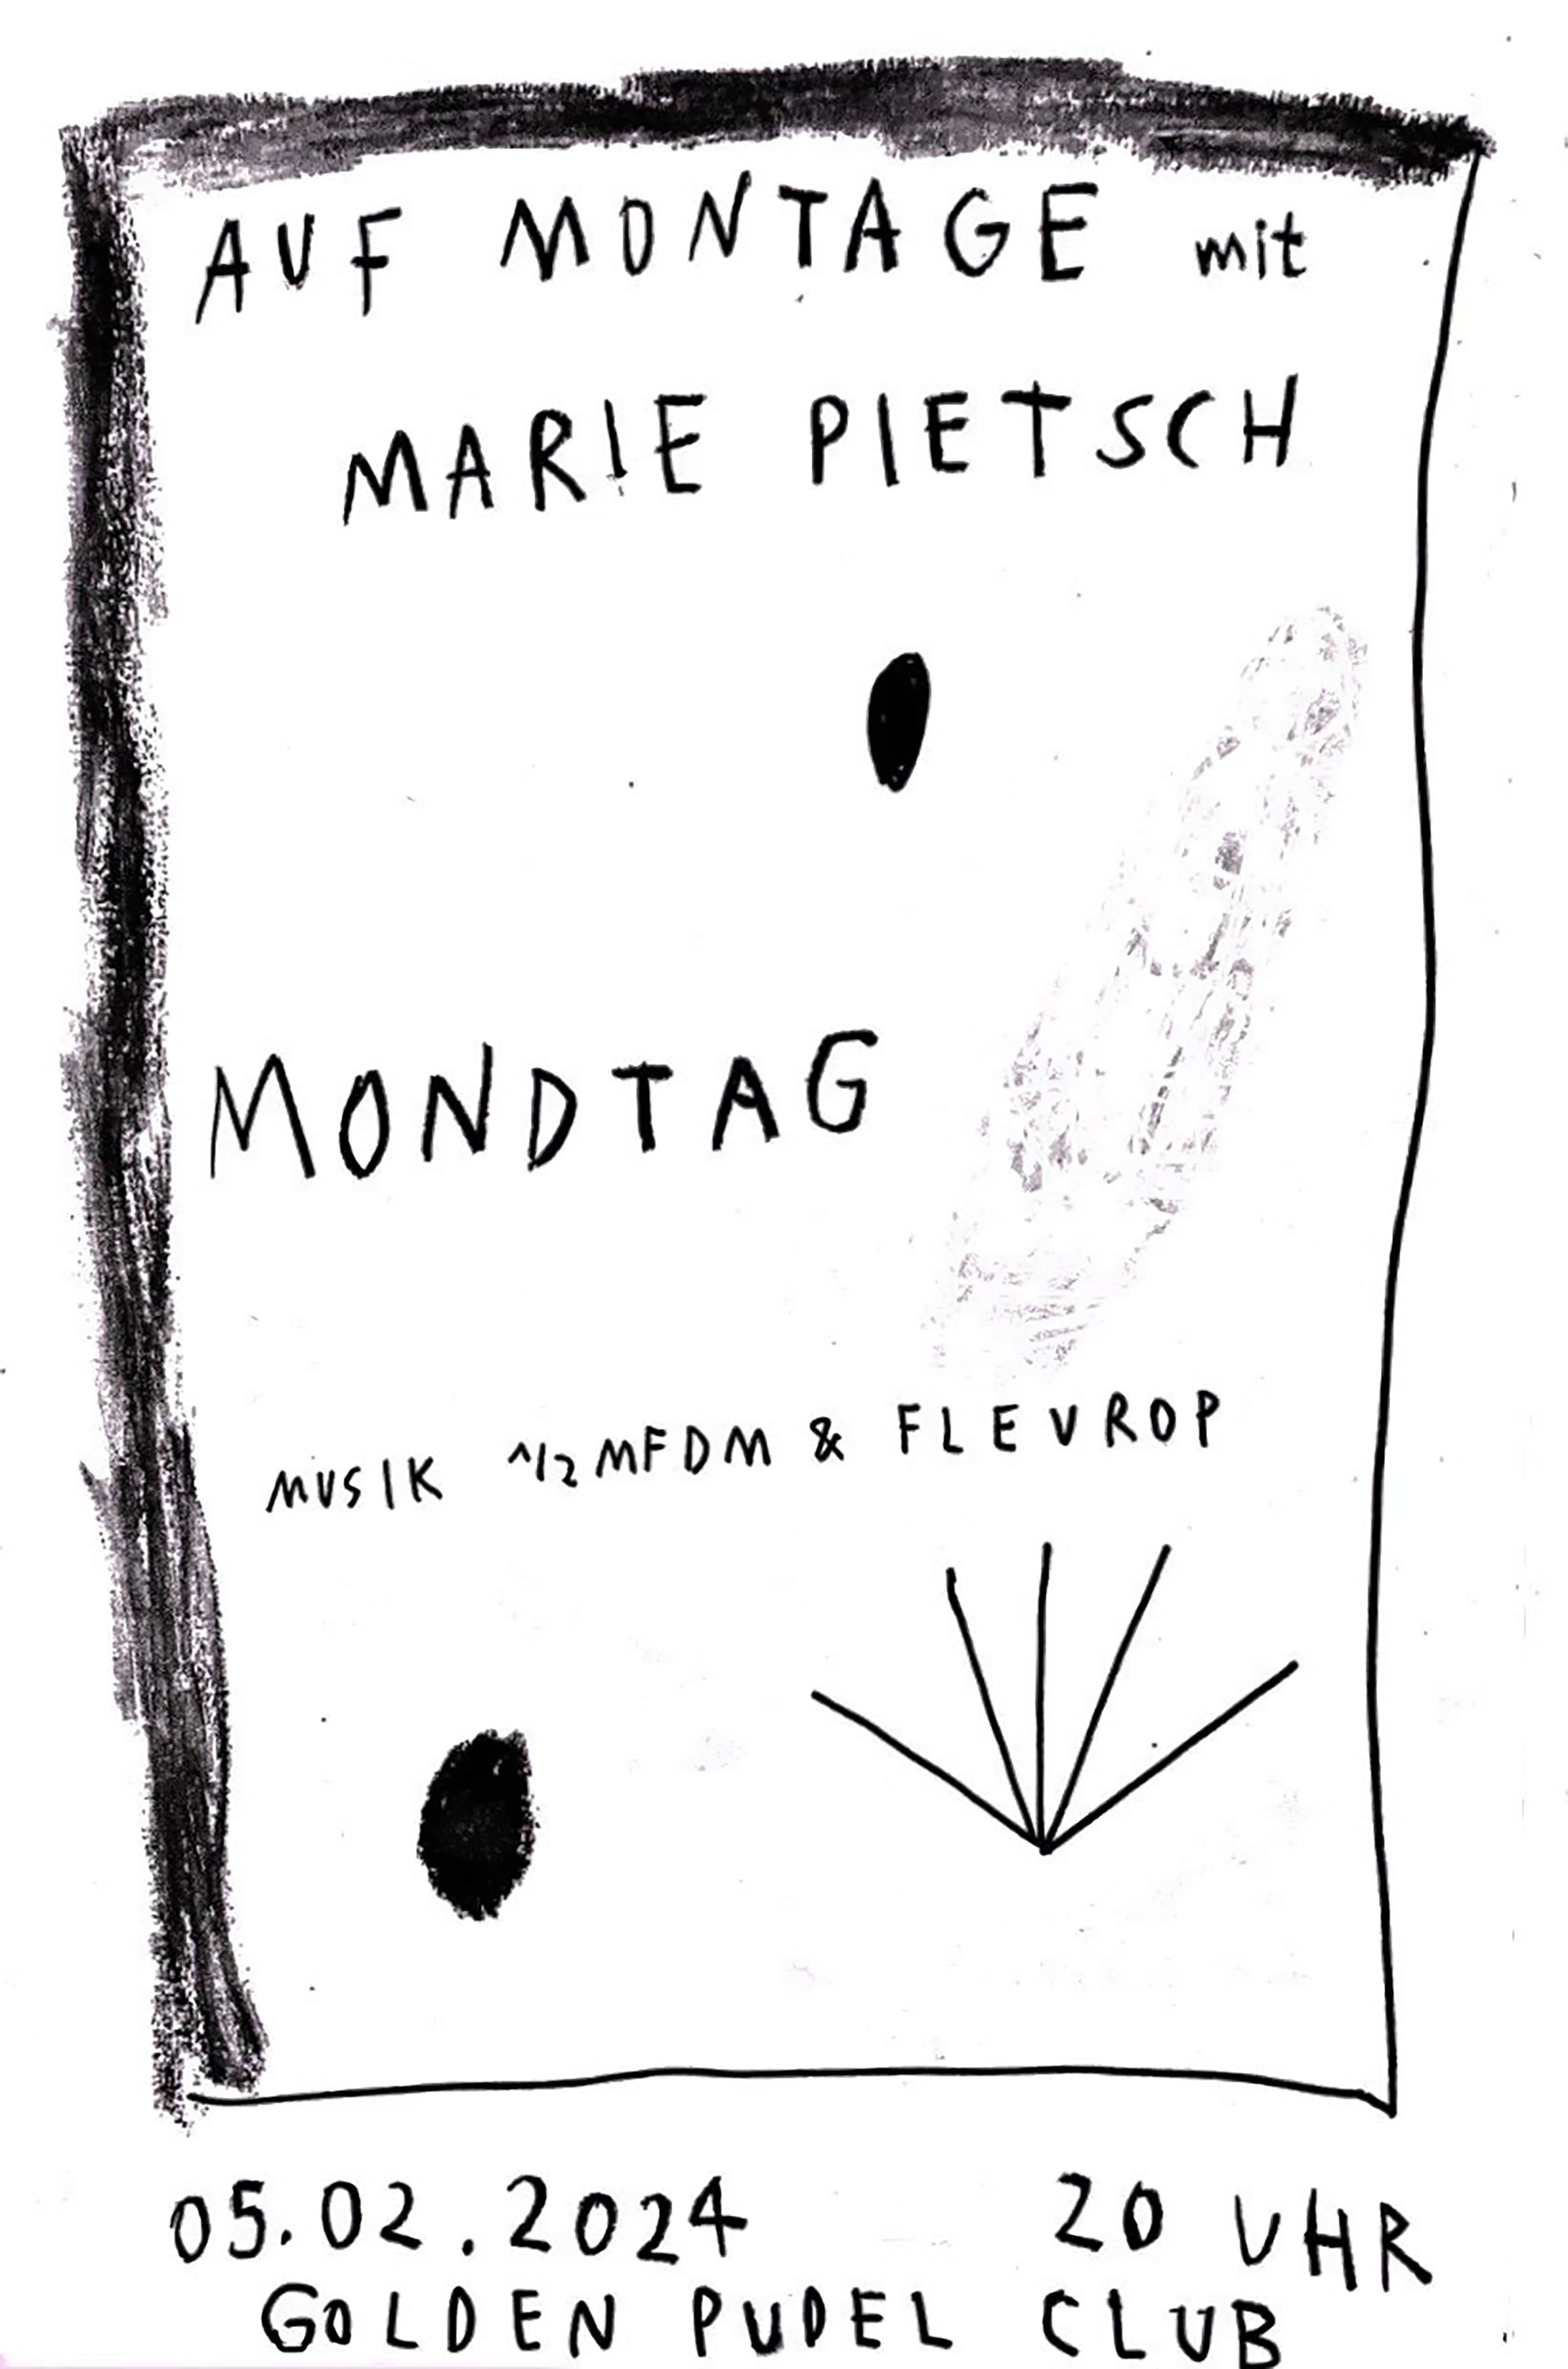 AUF MONTAGE mit
MARIE PIETSCH
MONDTAG
MUSIK 1/2 MFDM & FLEUROP
05.02.2024 20 UHR
GOLDEN PUDEL CLUB